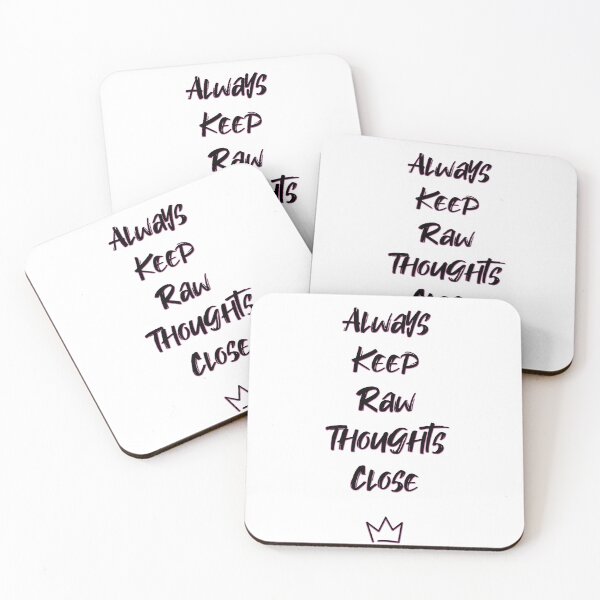 Always
Keep
Raw
Always
Keep
Raw
Thoughts
Always
Keep
Raw
Thoughts
Close
Always
Keep
Raw
Thoughts
Close